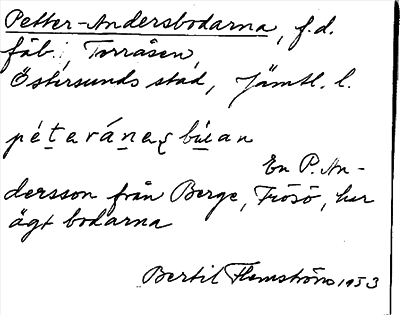 Petter-Andersbodarna, f.d.
fäb., Torråsen,
Östersunds stad, Jämtl. l.
En P. An-
dersson från Berge, Frösö, har
ägt bodarna
Bertil Flemström 1953